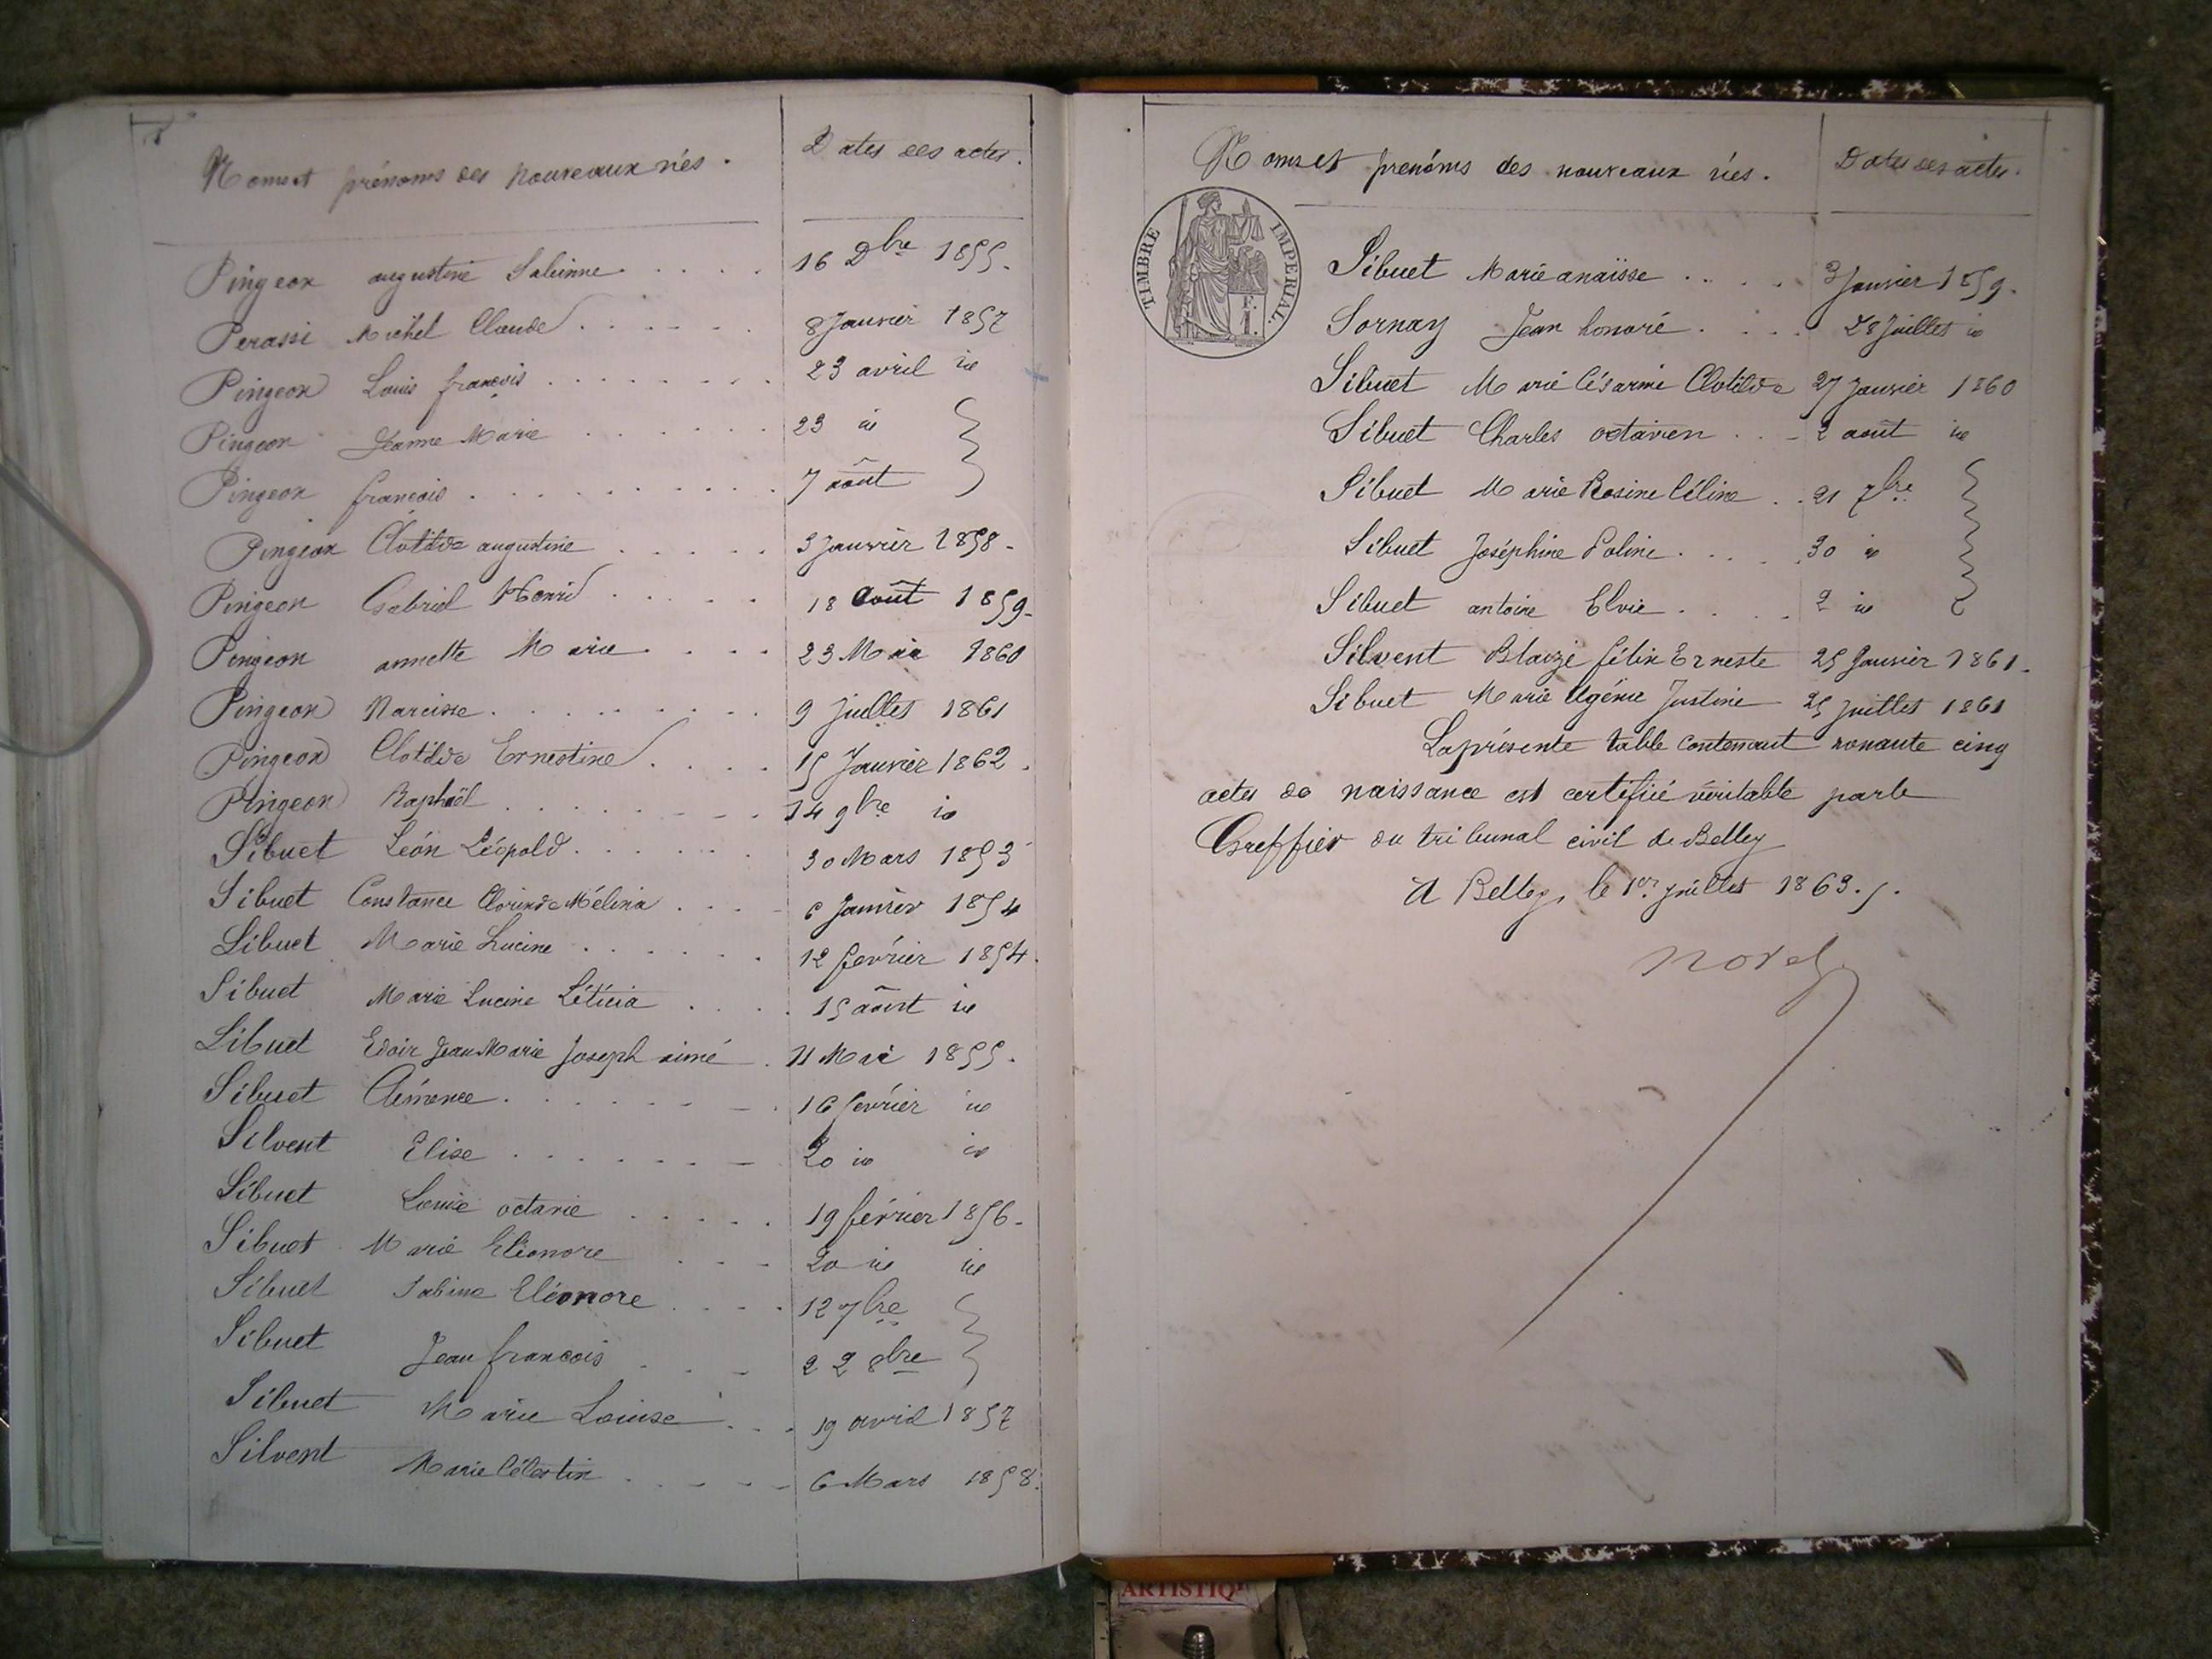 Noms et prénoms des nouveaux nés.
Dates des actes.
Pingeon augustine Sabinne 16 Dbre 1855.
Perassi Michel Claude 8 Janvier 1857
Pingeon Louis françois 23 avril id
Pingeon Jeanne Marie 23 id
Pingeon françois 7 août
Pingeon Clotilde augustine 3 Janvier 1858.
Pingeon Gabriel Henri 18 août 1859.
Pingeon annette Marie 23 Mai 1860
Pingeon Narcisse 9 Juillet 1861
Pingeon Clotilde Ernestine 15 Janvier 1862.
Pingeon Raphaël 14 9bre id
Sibuet Léon Léopold 30 Mars 1853
Sibuet Constance Clorinde Mélina 6 Janvier 1854
Sibuet Marie Lucine 12 février 1854.
Sibuet Marie Lucine Léticia 15 août id
Sibuet Edoir Jean Marie Joseph aimé 11 Mai 1855.
Sibuet Clémence 16 février id
Silvent Elise 20 id id
Sibuet Louise octavie 19 février 1856.
Sibuet Marie Eléonore 20 id id
Sibuet Sabine Eléonore 12 7bre
Sibuet Jean françois 22 8bre
Sibuet Marie Louise 19 avril 1857
Silvent Marie Célestin 6 Mars 1858.
Noms et prénoms des nouveaux nés.
Dates des actes.
TIMBRE IMPERIAL.
Sibuet Marie anaïsse 3 Janvier 1859.
Sornay Jean honoré 28 Juillet id
Sibuet Marie Césarine Clotilde 27 Janvier 1860
Sibuet Charles octavien 2 août id
Sibuet Marie Rosine Céline 21 7bre
Sibuet Joséphine Poline 30 id
Sibuet antoine Elvie 2 id
Silvent Blaize félix Erneste 25 Janvier 1861.
Sibuet Marie Ugénie Justine 25 Juillet 1861
La présente table contenant nonante cinq
actes de naissance est certifiée véritable par le
Greffier du tribunal civil de Belley
A Belley, le 1er juillet 1863.
ARTISTIQ